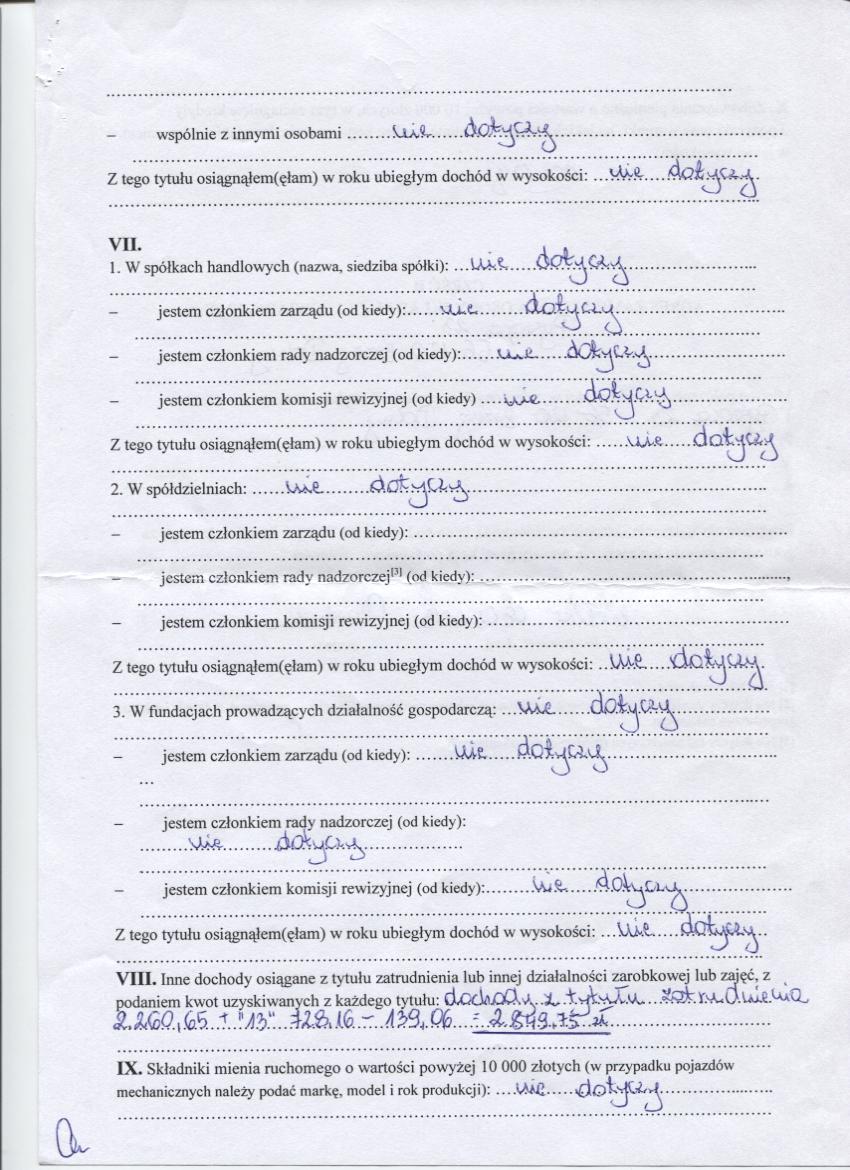 – wspólnie z innymi osobami nie dotyczy
Z tego tytułu osiągnąłem(ęłam) w roku ubiegłym dochód w wysokości: nie dotyczy
VII.
1. W spółkach handlowych (nazwa, siedziba spółki): nie dotyczy
– jestem członkiem zarządu (od kiedy): nie dotyczy
– jestem członkiem rady nadzorczej (od kiedy): nie dotyczy
– jestem członkiem komisji rewizyjnej (od kiedy) nie dotyczy
Z tego tytułu osiągnąłem(ęłam) w roku ubiegłym dochód w wysokości: nie dotyczy
2. W spółdzielniach: nie dotyczy
– jestem członkiem zarządu (od kiedy):
– jestem członkiem rady nadzorczej[3] (od kiedy):
– jestem członkiem komisji rewizyjnej (od kiedy):
Z tego tytułu osiągnąłem(ęłam) w roku ubiegłym dochód w wysokości: nie dotyczy
3. W fundacjach prowadzących działalność gospodarczą: nie dotyczy
– jestem członkiem zarządu (od kiedy): nie dotyczy
...
– jestem członkiem rady nadzorczej (od kiedy):
nie dotyczy
– jestem członkiem komisji rewizyjnej (od kiedy): nie dotyczy
Z tego tytułu osiągnąłem(ęłam) w roku ubiegłym dochód w wysokości: nie dotyczy
VIII. Inne dochody osiągane z tytułu zatrudnienia lub innej działalności zarobkowej lub zajęć, z
podaniem kwot uzyskiwanych z każdego tytułu: dochody z tytułu zatrudnienia
2.260,65 + "13" 728,16 – 139,06 = 2.849,75 zł
IX. Składniki mienia ruchomego o wartości powyżej 10 000 złotych (w przypadku pojazdów
mechanicznych należy podać markę, model i rok produkcji): nie dotyczy